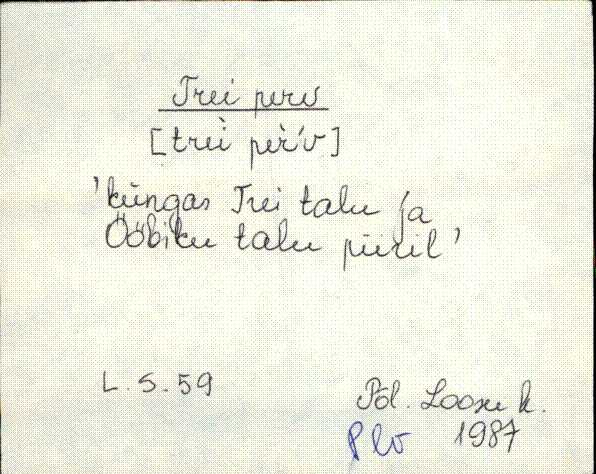 Trei perv
[trèi pèŕv]
'küngas Trei talu ja
Ööbiku talu piiril'
L. S. 59
Põl. Loose k.
Plv 1987